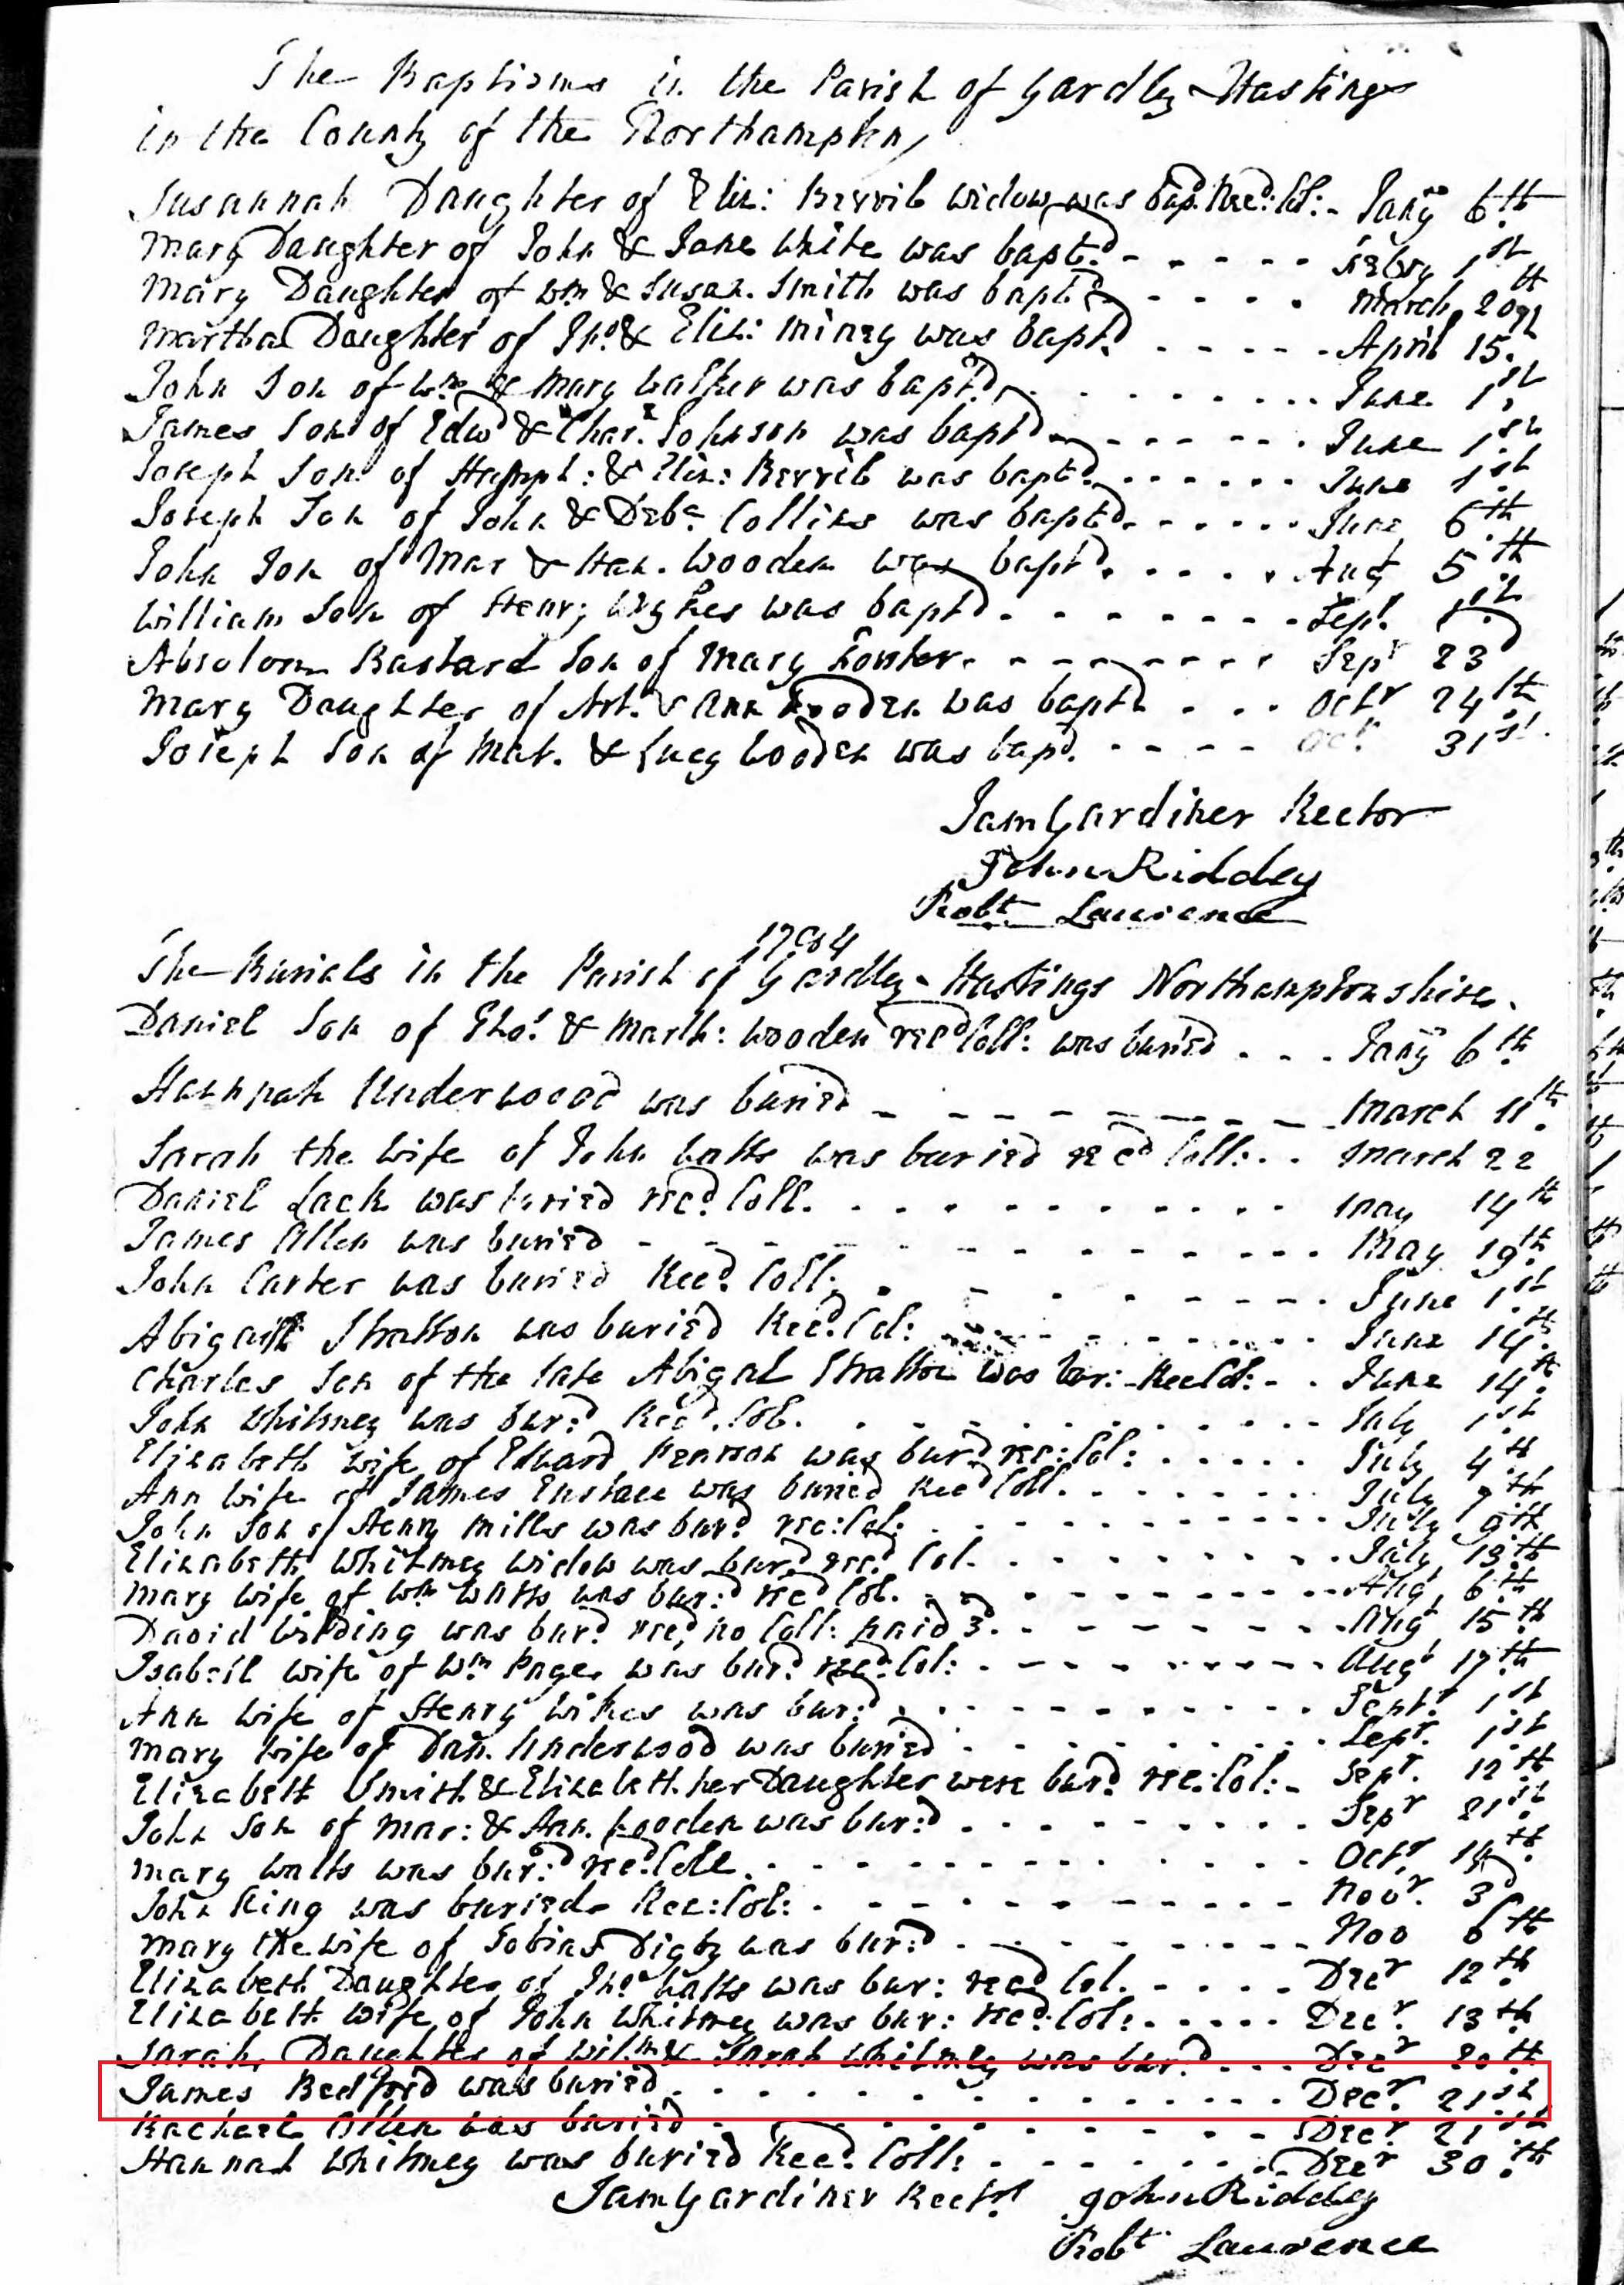 The Baptisms in the Parish of Yardley Hastings
in the County of the Northampton
Susannah Daughter of Eliz: Berril widow was bap. Rec:d Col: - Jany 6th
Mary Daughter of John & Jane White was bapt.d - - - - - Febry 1st
Mary Daughter of Wm & Susan. Smith was bapt.d - - - - March 20th
Martha Daughter of Jno. & Eliz: Miney was bapt.d - - - - - April 15th
John Son of Wm. & Mary Walker was bapt.d - - - - - June 1st
James Son of Edwd & Char. Johnson was bapt.d - - - - - June 1st
Joseph Son of Humph: & Eliz: Berril was bapt.d - - - - - June 1st
Joseph Son of John & Deb. Collins was bapt.d - - - - - June 6th
John Son of Mar & Han. Wooden was bapt.d - - - - Aug 5th
William Son of Henry was bapt.d - - - - - - Sep.t 1st
Absolom Bastard Son of Mary - - - - - - Sepr 23d
Mary Daughter of Art. & Ann Wooden was bapt.d - - - Octr 24th
Joseph Son of Mat. & Lucy Wooden was bap.d - - - - Oct. 31st
Jam Gardiner Rector
John Riddey
Robt Laurence
1784
The Burials in the Parish of Yardley-Hastings Northamptonshire.
Daniel Son of Tho.s & Marth: Wooden rec.d Coll: was buried - - - Jany 6th
Hannah Underwood was buried - - - - - - March 11th
Sarah the wife of John Watts was buried rec.d Coll: - - March 22
Daniel Lack was buried rec.d Coll. - - - - - - May 14th
James Allen was buried - - - - - - May 19th
John Carter was buried Rec.d Coll: - - - - - - June 1st
Abigail Stratton was buried Rec.d Col: - - - - - - June 14th
Charles Son of the late Abigal Stratton was bur: Rec Col: - - June 14th
John Whitney was bur:d Rec.d Col. - - - - - - July 1st
Elizabeth wife of Edward Pearson was bur.d rec: Col: - - - - - July 4th
Ann wife of James Eustace was buried Rec.d Coll. - - - - - - July 7th
John Son of Henry Mills was bur.d rec: Col: - - - - - - July 9th
Elizabeth Whitney widow was bur.d rec.d Col. - - - - - - July 19th
Mary wife of Wm Watts was bur:d rec.d Col. - - - - - - Aug.t 6th
David was bur.d rec.d no Coll: paid 3d. - - - - - Augt 15th
Isabell wife of Wm Page was bur.d rec.d Col: - - - - - - Augt 17th
Ann wife of Henry was bur:d - - - - - - Sept.r 1st
Mary wife of Dan. Underwood was buried - - - - - - Sept. 1st
Elizabeth Smith & Elizabeth her Daughter were bur.d rec: Col: - Sept. 12th
John Son of Mar: & Ann Wooden was bur:d - - - - - - Sepr 21st
Mary Watts was bur:d rec.d Coll - - - - - - Octr 14th
John King was buried Rec: Col: - - - - - - Novr. 3d
Mary the wife of Tobias Digby was bur:d - - - - - - Nov 6th
Elizabeth Daughter of Tho.s Watts was bur: rec.d Col. - - - - Decr 12th
Elizabeth wife of John Whitney was bur: rec.d Col: - - - - - Decr. 13th
Sarah Daughter of Wil.m & Sarah Whitney was bur.d - - - Decr 20th
James Bedford was buried - - - - - - Decr. 21st
Rachael Allen was buried - - - - - - Decr. 21st
Hannah Whitney was buried Rec.d Coll: - - - - - - Decr 30th
Jam Gardiner Rectr John Riddey
Robt Laurence